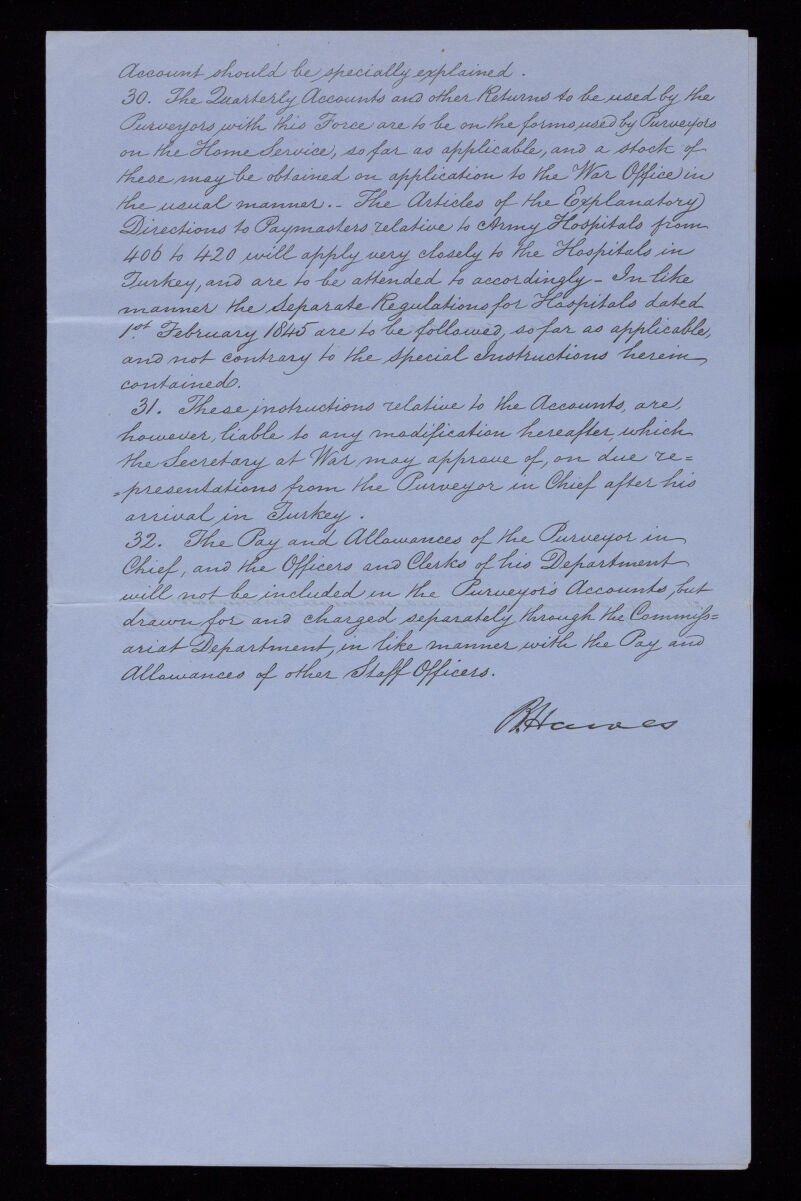 Account should be specially explained.
30. The Quarterly Accounts and other Returns to be used by the
Purveyors with this Force are to be on the forms used by Purveyors
on the Home Service, so far as applicable, and a stock of
these may be obtained on application to the War Office in
the usual manner. - The Articles of the Explanatory
Directions to Paymasters relative to Army Hospitals from
406 to 420 will apply very closely to the Hospitals in
Turkey, and are to be attended to accordingly - In like
manner the Separate Regulations for Hospitals dated
1st February 1845 are to be followed, so far as applicable,
and not contrary to the special Instructions herein
contained.
31. These instructions relative to the Accounts, are,
however, liable to any modification hereafter, which
the Secretary at War may approve of, on due re=
=presentations from the Purveyor in Chief after his
arrival in Turkey.
32. The Pay and Allowances of the Purveyor in
Chief, and the Officers and Clerks of his Department
will not be included in the Purveyor's Accounts, but
drawn for and charged separately through the Commiss=
ariat Department, in like manner with the Pay and
Allowances of other Staff Officers.
B. Hawes